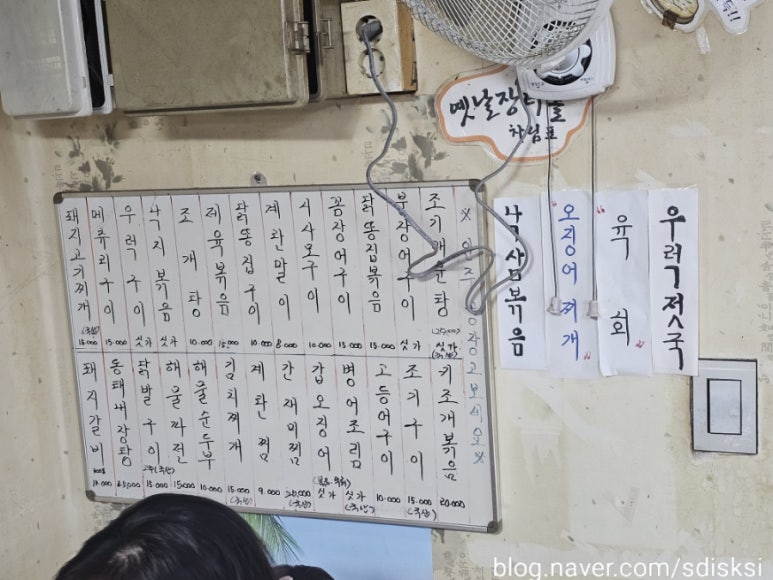 옛날장터
차림표
돼지고기찌개 (국산) 15.000
메추리구이 15.000
우럭구이 싯가
낙지볶음 싯가
조개탕 10.000
제육볶음 15.000
닭똥집구이 10.000
계란말이 8.000
시사모구이 10.000
꼼장어구이 15.000
닭똥집볶음 15.000
붕장어구이 싯가
조기매운탕 (25.000) 싯가
돼지갈비
동태내장탕 25.000
닭발구이 15.000
해물파전 15.000
해물순두부 10.000
김치찌개 15.000 (국산)
계란찜 9.000
간재미찜 20,000 (국산)
갑오징어 싯가
병어조림 싯가 (국산)
고등어구이 10.000
조기구이 15.000 (국산)
키조개볶음 20.000
낙삼볶음
"오징어찌개"
"육회"
우럭젓국
blog.naver.com/sdisksi